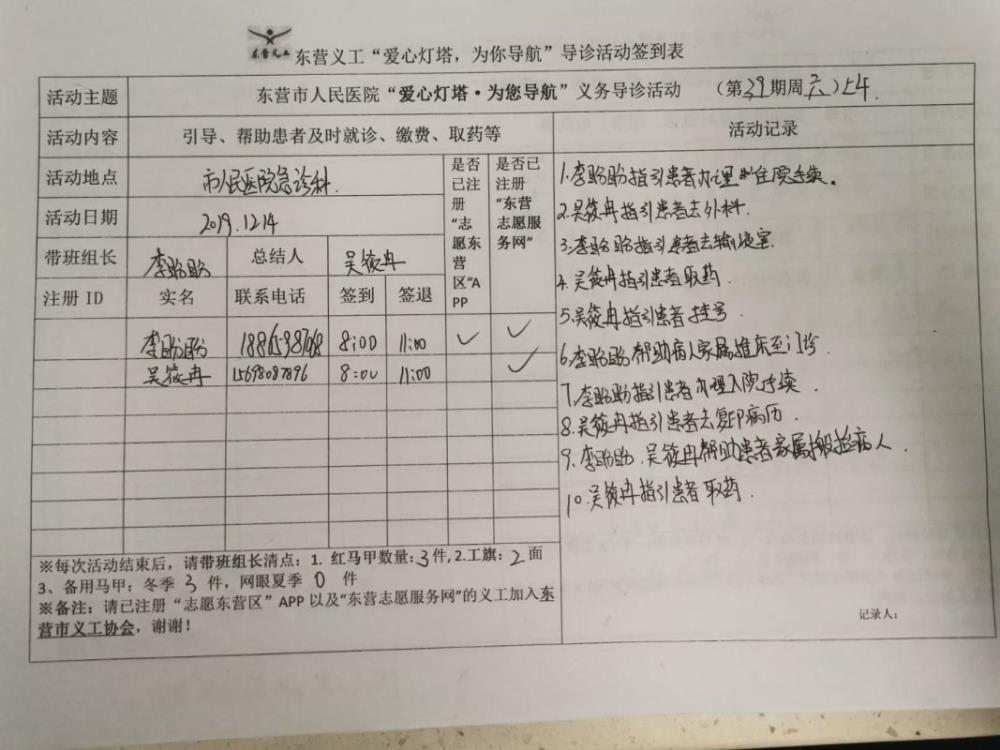 东营义工
东营义工“爱心灯塔，为你导航”导诊活动签到表
活动主题 东营市人民医院“爱心灯塔·为您导航”义务导诊活动 （第39期周六）上午.
活动内容 引导、帮助患者及时就诊、缴费、取药等
活动地点 市人民医院急诊科.
活动日期 2019.12.14
带班组长 李盼盼 总结人 吴筱冉
是否已注册“志愿东营区”APP
是否已注册“东营志愿服务网”
注册 ID 实名 联系电话 签到 签退
李盼盼 8:00 11:00 ✓ ✓
吴筱冉 15698087896 8:00 11:00 ✓
※每次活动结束后，请带班组长清点：1. 红马甲数量：3件, 2.工旗：2面
3、备用马甲：冬季 3 件，网眼夏季 0 件
※备注：请已注册“志愿东营区”APP 以及“东营志愿服务网”的义工加入东
营市义工协会，谢谢！
活动记录
1.李盼盼指引患者办理住院手续。
2.吴筱冉指引患者去外科.
3.李盼盼指引患者去输液室.
4.吴筱冉指引患者取药.
5.吴筱冉指引患者挂号.
6.李盼盼帮助病人家属推床至门诊.
7.李盼盼指引患者办理入院手续.
8.吴筱冉指引患者去复印病历.
9.李盼盼.吴筱冉帮助患者家属搬抬病人.
10.吴筱冉指引患者取药.
记录人：